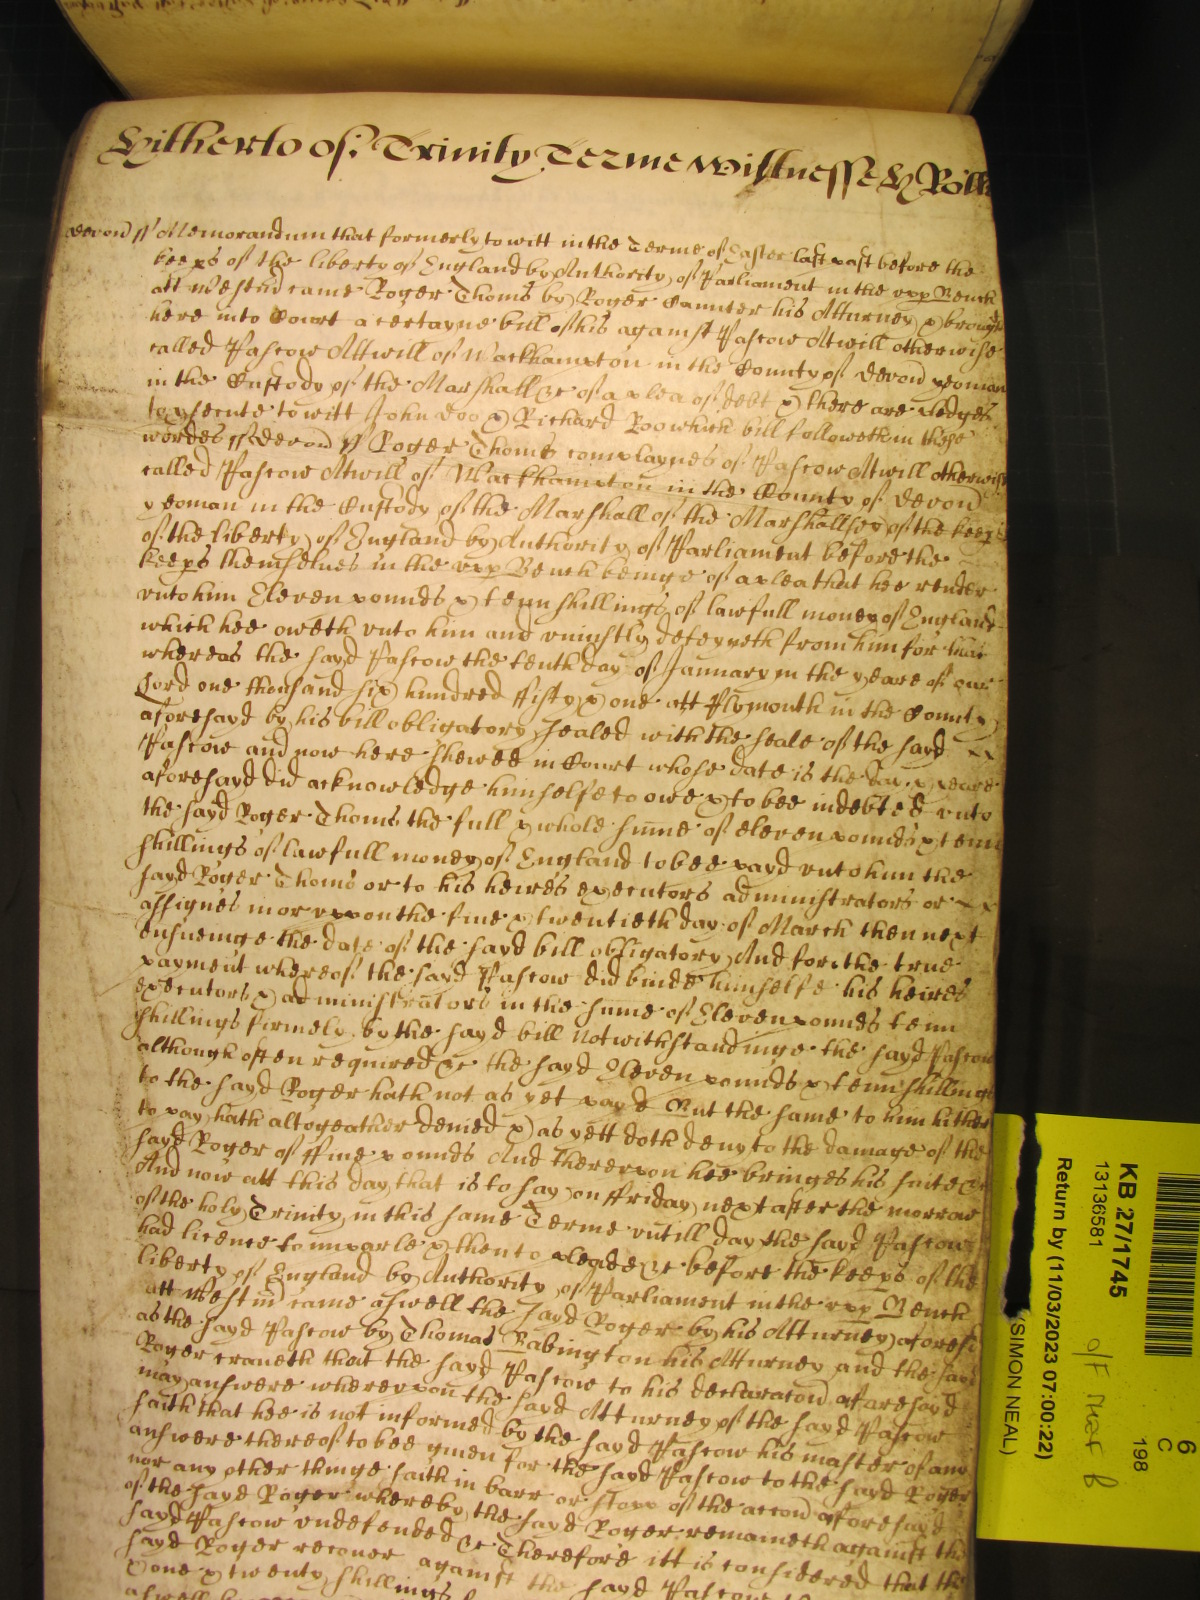 Hitherto of Trinity Terme Wittnesse H Rolle
Devon ss Memorandum that formerly to witt in the Terme of Easter last past before the
keeps of the liberty of England by Authority of Parliament in the upp Bench
att Westm came Roger Thoms by Roger Caunter his Atturney & brought
here into Court a certayne bill of his against Pascow Atwill otherwise
called Pascow Attwill of Wackhampton in the County of Devon yeoman
in the Custody of the Marshall &c of a plea of debt & there are pledges
to psecute to witt John Doo & Richard Roo which bill followeth in these
wordes ss Devon ss Roger Thoms complaynes of Pascow Atwill otherwise
called Pascow Atwill of Wackhampton in the County of Devon
yeoman in the Custody of the Marshall of the Marshallsey of the keeps
of the liberty of England by Authority of Parliament before the
keeps themselues in the upp Bench beinge of a plea that hee render
vnto him Eleven pounds & tenn shillings of lawfull money of England
which hee oweth vnto him and vniustly deteyneth from him for that
whereas the sayd Pascow the tenth day of January in the yeare of our
Lord one thousand six hundred fifty & one att Plymouth in the County
aforesayd by his bill obligatory sealed with the seale of the sayd
Pascow and now here shewed in Court whose date is the day & yeare
aforesayd did acknowledge himselfe to owe & to bee indebted vnto
the sayd Roger Thoms the full & whole sume of eleven pounds & tenn
shillings of lawfull money of England to bee payd vnto him the
sayd Roger Thoms or to his heires executors administrators or
assignes in or vppon the fiue & twentieth day of March then next
ensueinge the date of the sayd bill obligatory And for the true
payment whereof the sayd Pascow did binde himselfe his heires
executors & administrators in the sume of Eleven pounds tenn
shillings firmely by the sayd bill Notwithstandinge the sayd Pascow
although often required &c the sayd Eleven pounds & tenn shillings
to the sayd Roger hath not as yet payd But the same to him hitherto
to pay hath altogeather denied & as yett doth deny to the damage of the
sayd Roger of ffiue pounds And therevpon hee bringes his suite &c
And now att this day that is to say on ffriday next after the morrow
of the holy Trinity in this same Terme vntill day the sayd Pascow
had licence to imparle & then to pleade &c before the keeps of the
liberty of England by Authority of Parliament in the upp Bench
att Westm came aswell the sayd Roger by his Atturney aforesd
as the sayd Pascow by Thomas Babington his Atturney and the sayd
Roger craueth that the sayd Pascow to his declaracon aforesayd
may answere wherevpon the sayd Atturney of the sayd Pascow
saith that hee is not informed by the sayd Pascow his master of any
answere thereof to bee giuen for the sayd Pascow to the sayd Roger
nor any other thinge saith in barr or stopp of the accon aforesayd
of the sayd Roger whereby the sayd Roger remaineth against the
sayd Pascow vndefended &c Therefore itt is considered that the
sayd Roger recouer against the sayd Pascow
& one & twenty shillings
aswell
KB 27/1745
13136581
Return by (11/03/2023 07:00:22)
(SIMON NEAL)
6
C
198